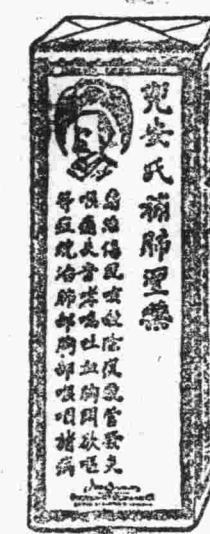 兜安氏補肺聖藥
專治傷風咳嗽痰氣管發炎
喉痛失音哮喘吐血胸悶欲嘔
等症統治肺部胸部喉咽諸病